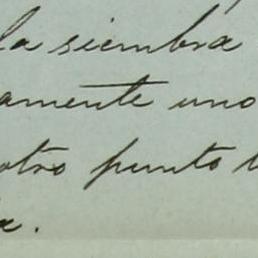 la siembra
amente uno
otro punto